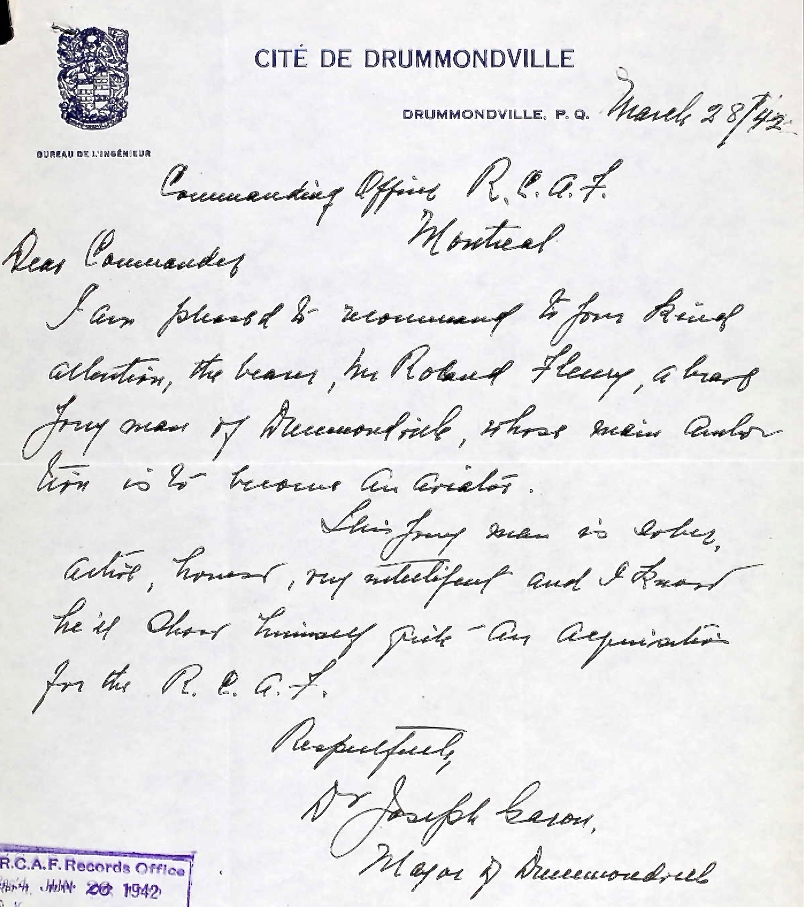 CITÉ DE DRUMMONDVILLE
DRUMMONDVILLE, P. Q. March 28/42
BUREAU DE L'INGÉNIEUR
Commanding Officer R. C. A. F.
Montreal
Dear Commander
I am pleased to recommend to your kind
attention, the bearer, Mr Roland Fleury, a brave
young man of Drummondville, whose main ambi
tion is to become an aviator.
This young man is sober,
active, honest, very intelligent and I know
he'll show himself quite an acquisition
for the R. C. A. F.
Respectfully,
Dr Joseph Garon,
Mayor of Drummondville
R.C.A.F. Records Office
JUN 20 1942